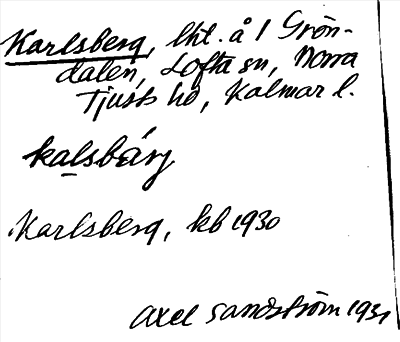 Karlsberg, lht. å 1 Grön-
dalen, Lofta sn, Norra
Tjusts hd, Kalmar l.
kalsbärj
Karlsberg, kb 1930
Axel Sandström 1931